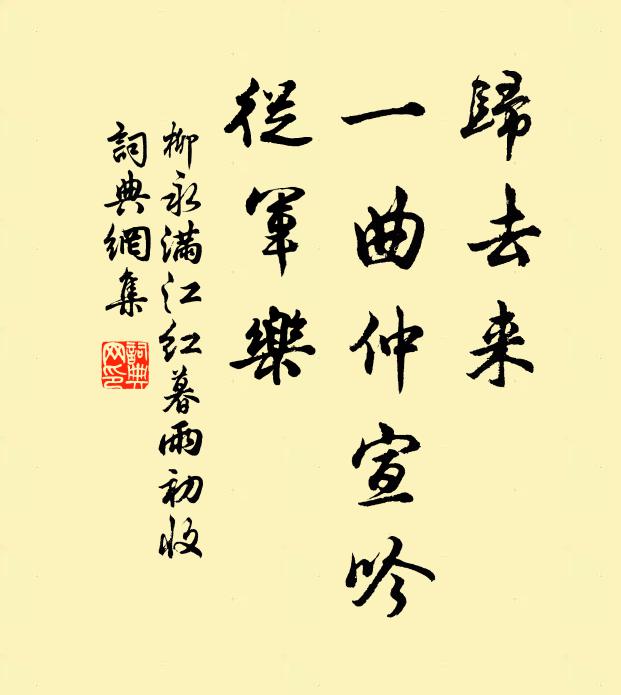 歸去来
一曲仲宣吟
從軍樂
柳永滿江红暮雨初收
詞典網集
詞典网印